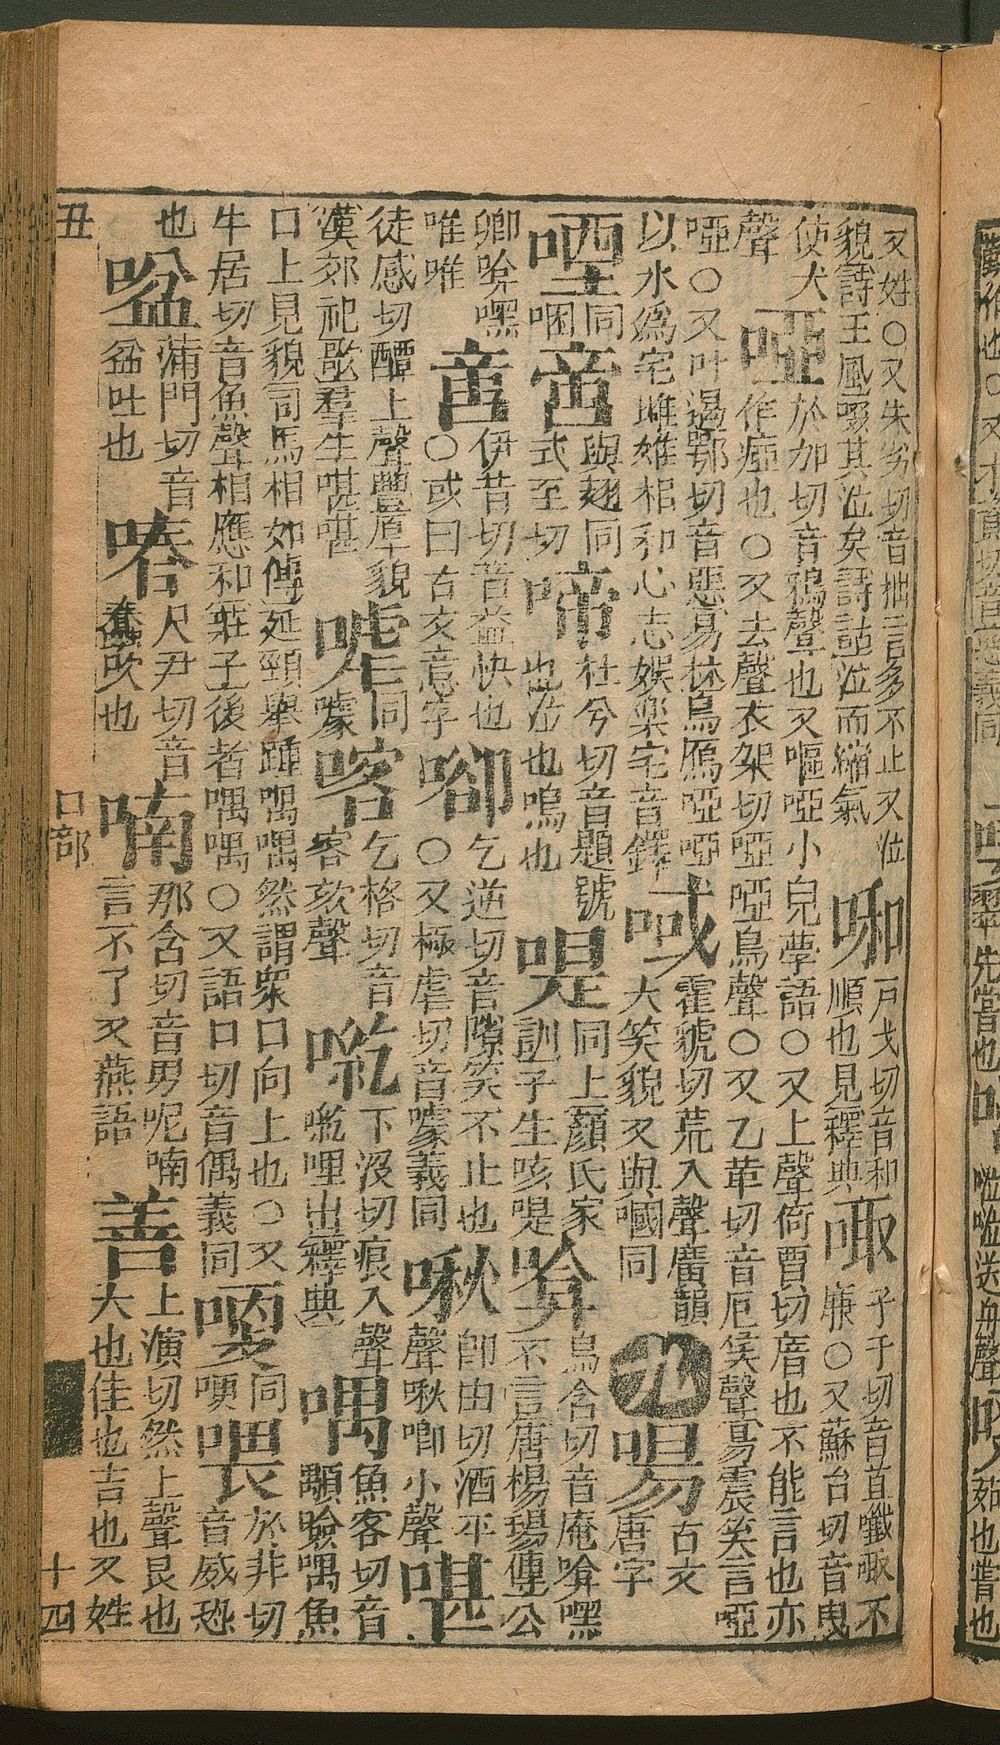 又姓○又朱劣切音拙言多不止又泣
貌詩王風啜其泣矣詩詁泣而縮氣
啝
戶戈切音和
順也見釋典
㖩
子于切音苴纖㖩不
廉○又蘇台切音曳
使犬
聲
啞
於加切音鴉聲也又嘔啞小兒學語○又上聲倚賈切㾎也不能言也亦
作瘂也○又去聲衣架切啞啞鳥聲○又乙革切音厄笑聲易震笑言啞
啞○又叶遏鄂切音惡易林鳥鴈啞啞
以水爲宅雌雄相和心志娛樂宅音鐸
㖪
霍虢切荒入聲廣韻
大笑貌又與嘓同
九
啺
古文
唐字
㖶
同
咽
啻
與翅同
式至切
啼
杜兮切音題號
也泣也嗚也
㖷
同上顏氏家
訓子生咳㖷
啽
烏含切音庵啽嘿
不言唐楊瑒傳公
卿啽嘿
唯唯
伊昔切音益快也
○或曰古文意字
乞逆切音隙笑不止也
○又極虐切音噱義同
啾
卽由切酒平
聲啾喞小聲
啿
徒感切醰上聲豐厚貌
漢郊祀歌羣生啿啿
同
噱
喀
乞格切音
客欬聲
下沒切痕入聲
哩出釋典
喁
魚容切音
顒噞喁魚
口上見貌司馬相如傳延頸舉踵喁喁然謂衆口向上也○又
牛居切音魚聲相應和莊子後者喁喁○又語口切音偶義同
同
哽
喂
於非切
音威恐
也
蒲門切音
盆吐也
尺尹切音
蠢吹也
喃
那含切音男呢喃
言不了又燕語
善
上演切然上聲良也
大也佳也吉也又姓
丑
口部
十四